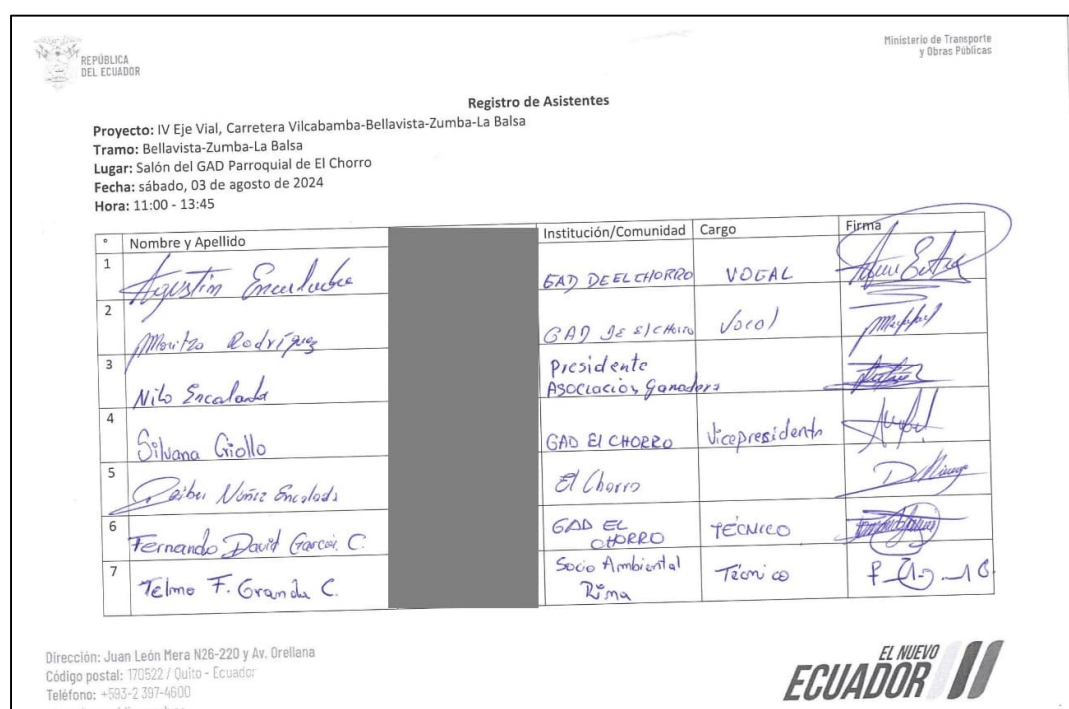 REPÚBLICA
DEL ECUADOR
Ministerio de Transporte
y Obras Públicas
Registro de Asistentes
Proyecto: IV Eje Vial, Carretera Vilcabamba-Bellavista-Zumba-La Balsa
Tramo: Bellavista-Zumba-La Balsa
Lugar: Salón del GAD Parroquial de El Chorro
Fecha: sábado, 03 de agosto de 2024
Hora: 11:00 - 13:45
° Nombre y Apellido Institución/Comunidad Cargo Firma
1 Agustín Encalada GAD DE EL CHORRO VOCAL
2 Maritza Rodríguez GAD DE El CHorro Vocal
3 Nilo Encalada Presidente
Asociación Ganadera
4 Silvana Giollo GAD El CHORRO Vicepresidenta
5 Núñez Encalada El Chorro
6 Fernando David García C. GAD EL
CHORRO TÉCNICO
7 Telmo F. Granda C. Socio Ambiental
Técnico
Dirección: Juan León Mera N26-220 y Av. Orellana
Código postal: 170522 / Quito - Ecuador
Teléfono: +593-2 397-4600
EL NUEVO
ECUADOR